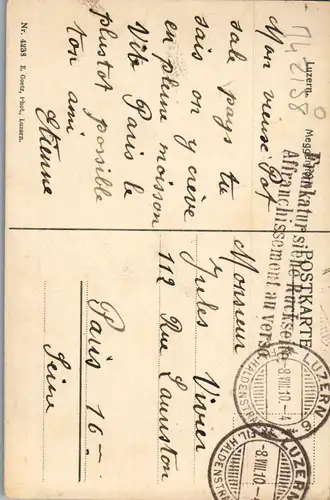 Luzern. Meggenhorn
POSTKARTE
Frankatur siehe Rückseite
Affranchissement au verso
Mon vieux Pot
sale pays tu
sais on y crève
en pleine moisson
Vite Paris le
plustot possible
ton ami
Etienne
Nr. 4238 E. Goetz, Phot., Luzern.
Monsieur
Jules Vivier
112 Rue Lauriston
Paris 16
Seine
LUZERN 6
-8.VIII.10.-4
FIL. HALDENSTR.
LUZERN
-8.VIII.10.-
FIL. HALDENSTR.